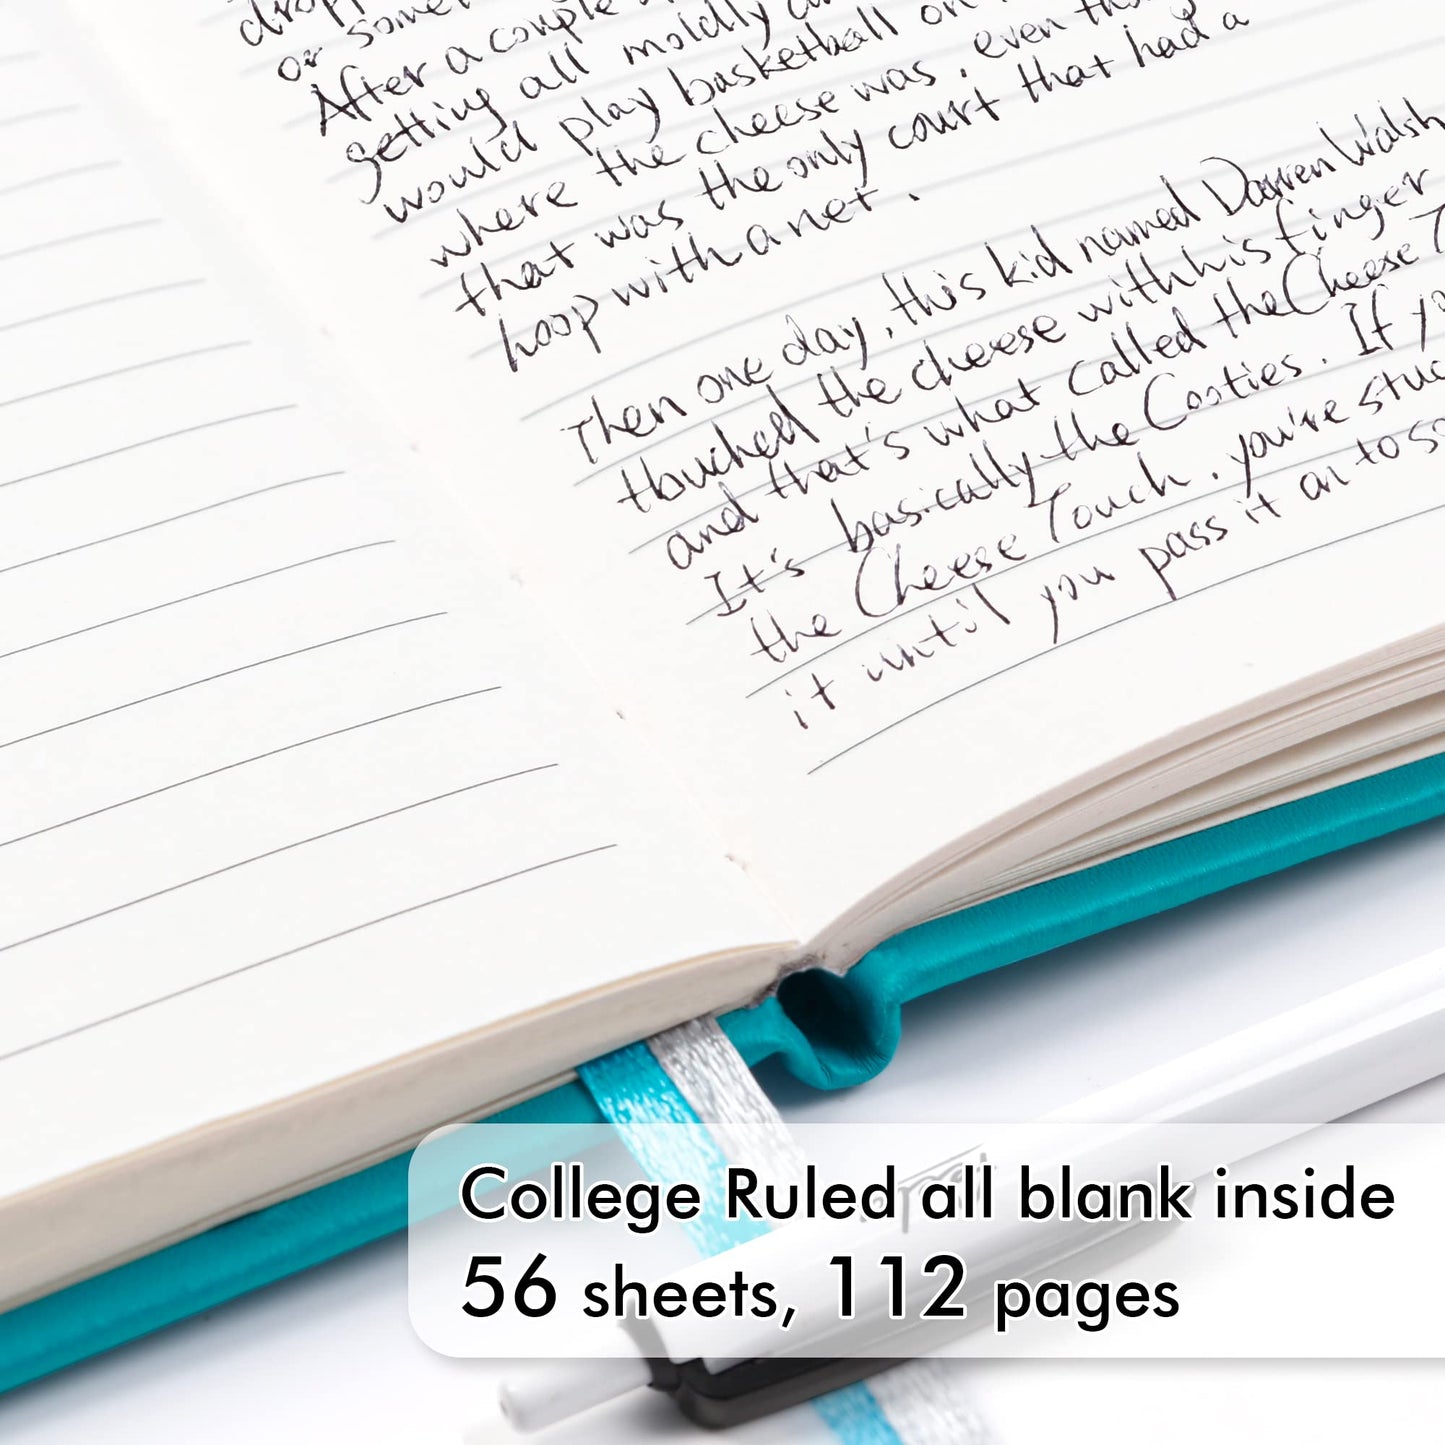 or
After a couple
getting all moldly
would play basketball on
where the cheese was, even
that was the only court that had a
hoop with a net.
Then one day, this kid named Darren Walsh
tbuched the cheese with his finger
and that's what called the Cheese T
It's basically the Cooties. If
the Cheese Touch. you're stuc
it until you pass it on to so
College Ruled all blank inside
56 sheets, 112 pages